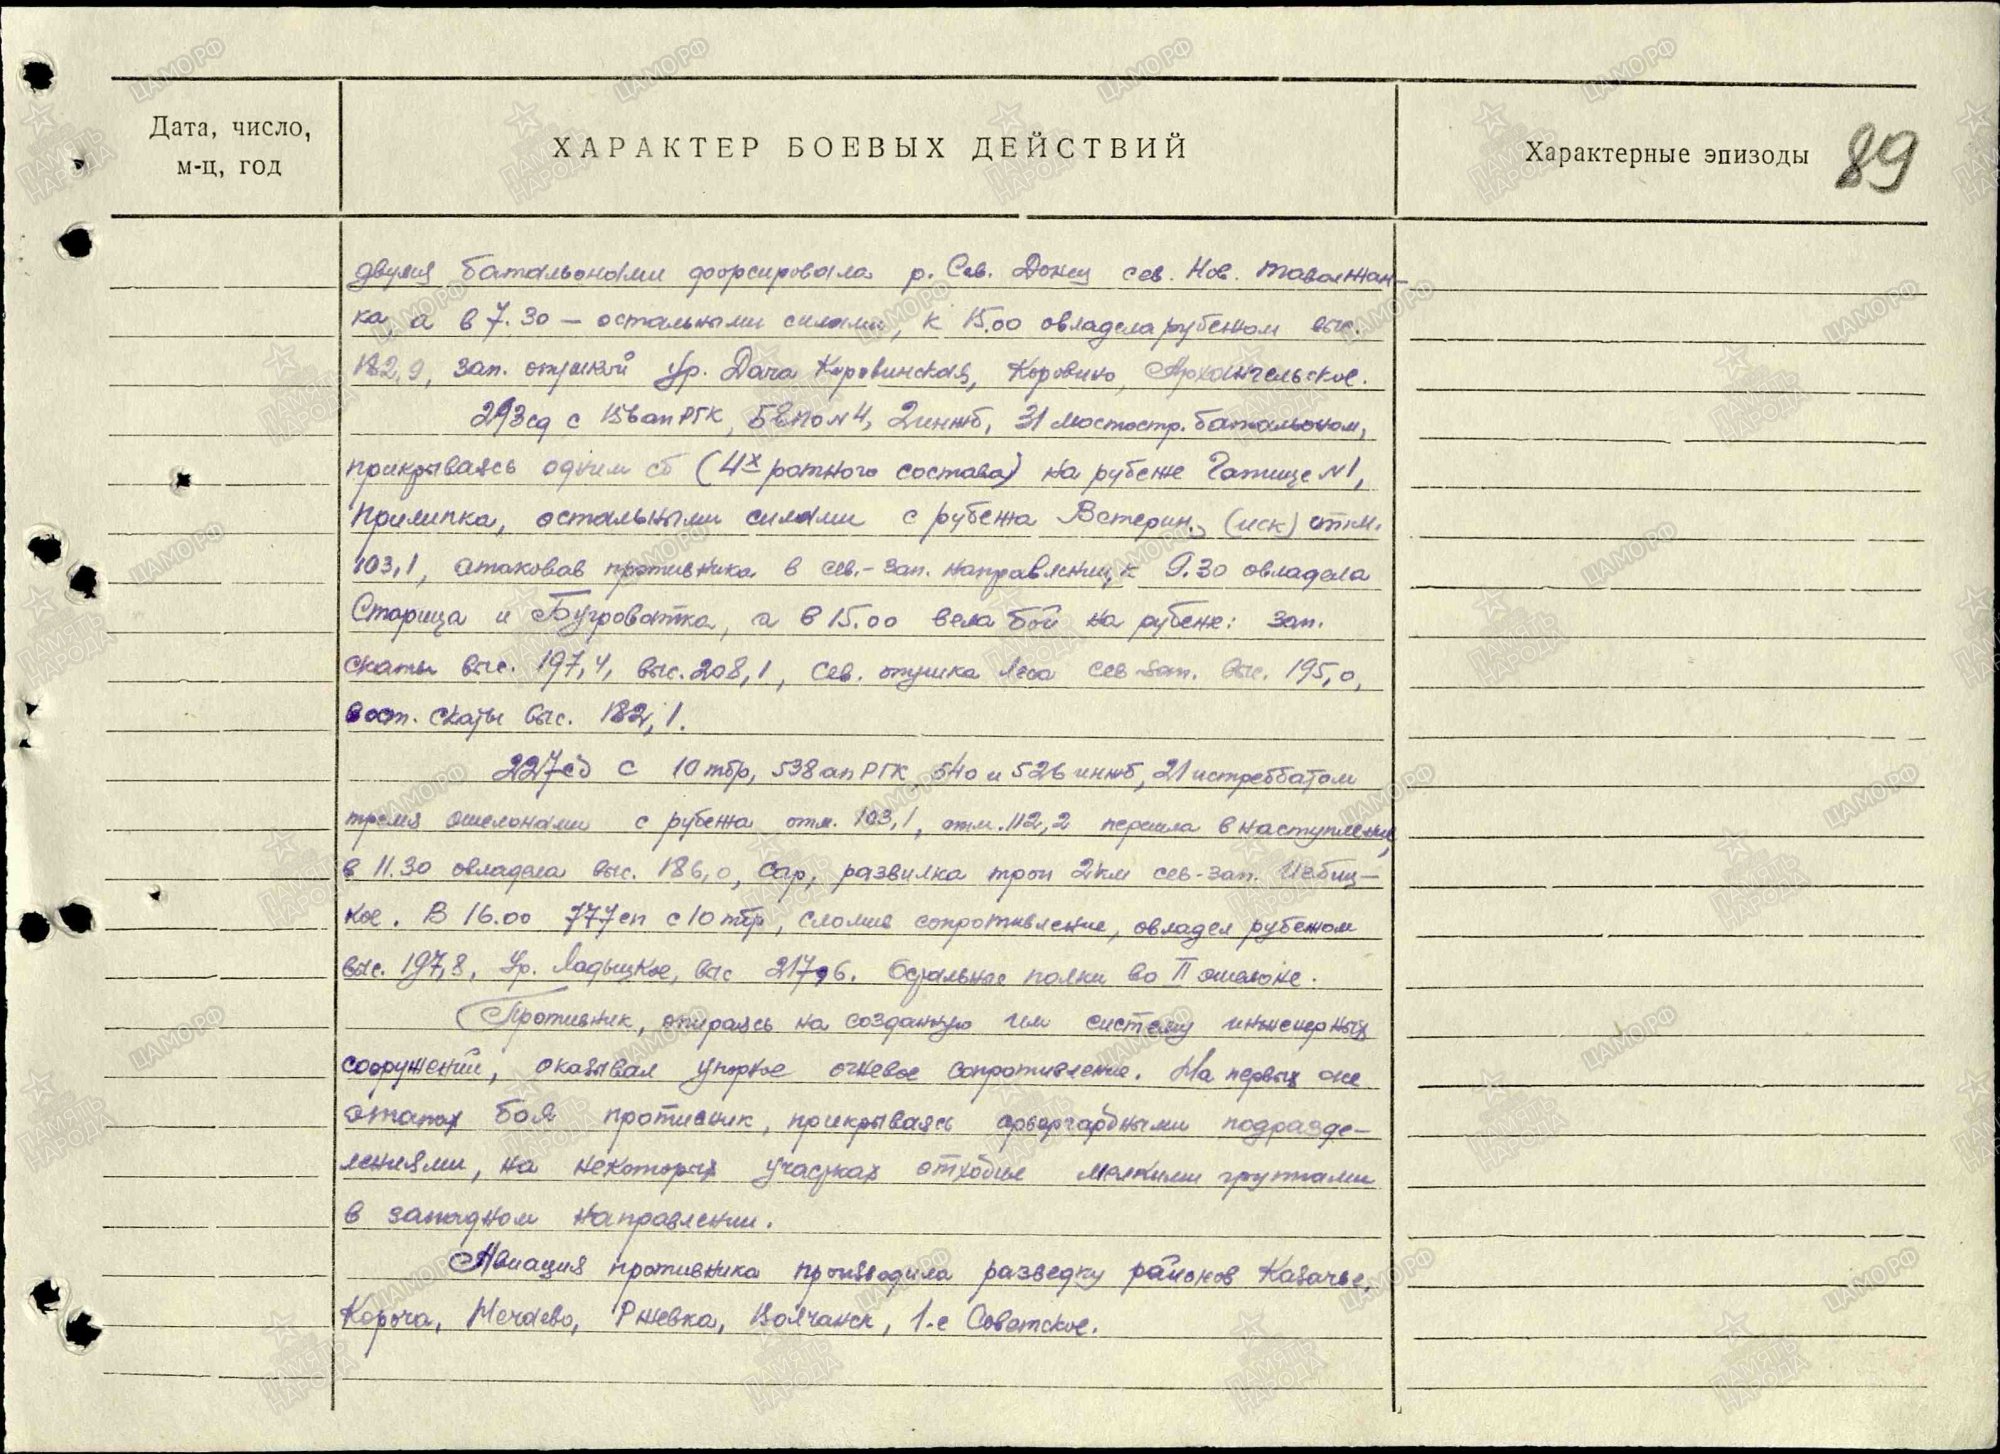 Дата, число,
м-ц, год
ХАРАКТЕР БОЕВЫХ ДЕЙСТВИЙ
Характерные эпизоды
89
двумя батальонами форсировала р. Сев. Донец сев. Нов. Таволжан-
ка, а в 7.30 — остальными силами, к 15.00 овладела рубежом выс.
182,9, зап. опушкой ур. Дача Коровинская, Коровино, Архангельское.
293сд с ап РГК, №4, 2 инжб, 31 мостостр. батальоном,
прикрываясь одним сб (4х ротного состава) на рубеже Гатище №1,
Прилипка, остальными силами с рубежа Ветерин., (иск) отм.
103,1, атаковав противника в сев.-зап. направлении, к 9.30 овладела
Старица и Бугроватка, а в 15.00 вела бой на рубеже: зап.
скаты выс. 197,4, выс. 208,1, сев. опушка леса сев-зап. выс. 195,0,
вост. скаты выс. 182,1.
227сд с 10 тбр, 538 ап РГК, 540 и 526 инжб, 21 истреббатом
тремя эшелонами с рубежа отм. 103,1, отм. 112,2 перешла в наступление,
в 11.30 овладела выс. 186,0, сар, развилка троп 2км сев-зап. Избиц-
кое. В 16.00 777сп с 10 тбр, сломив сопротивление, овладел рубежом
выс. 197,8, Ур. Ладыцкое, выс 217,6. Остальные полки во II эшелоне.
Противник, опираясь на созданную им систему инженерных
сооружений, оказывал упорное огневое сопротивление. На первых же
этапах боя противник, прикрываясь арьергардными подразде-
лениями, на некоторых участках отходил мелкими группами
в западном направлении.
Авиация противника производила разведку районов Казачье,
Короча, Нечаево, Ржевка, Волчанск, 1-е Советское.
ЦАМО.РФ
ПАМЯТЬ
НАРОДА